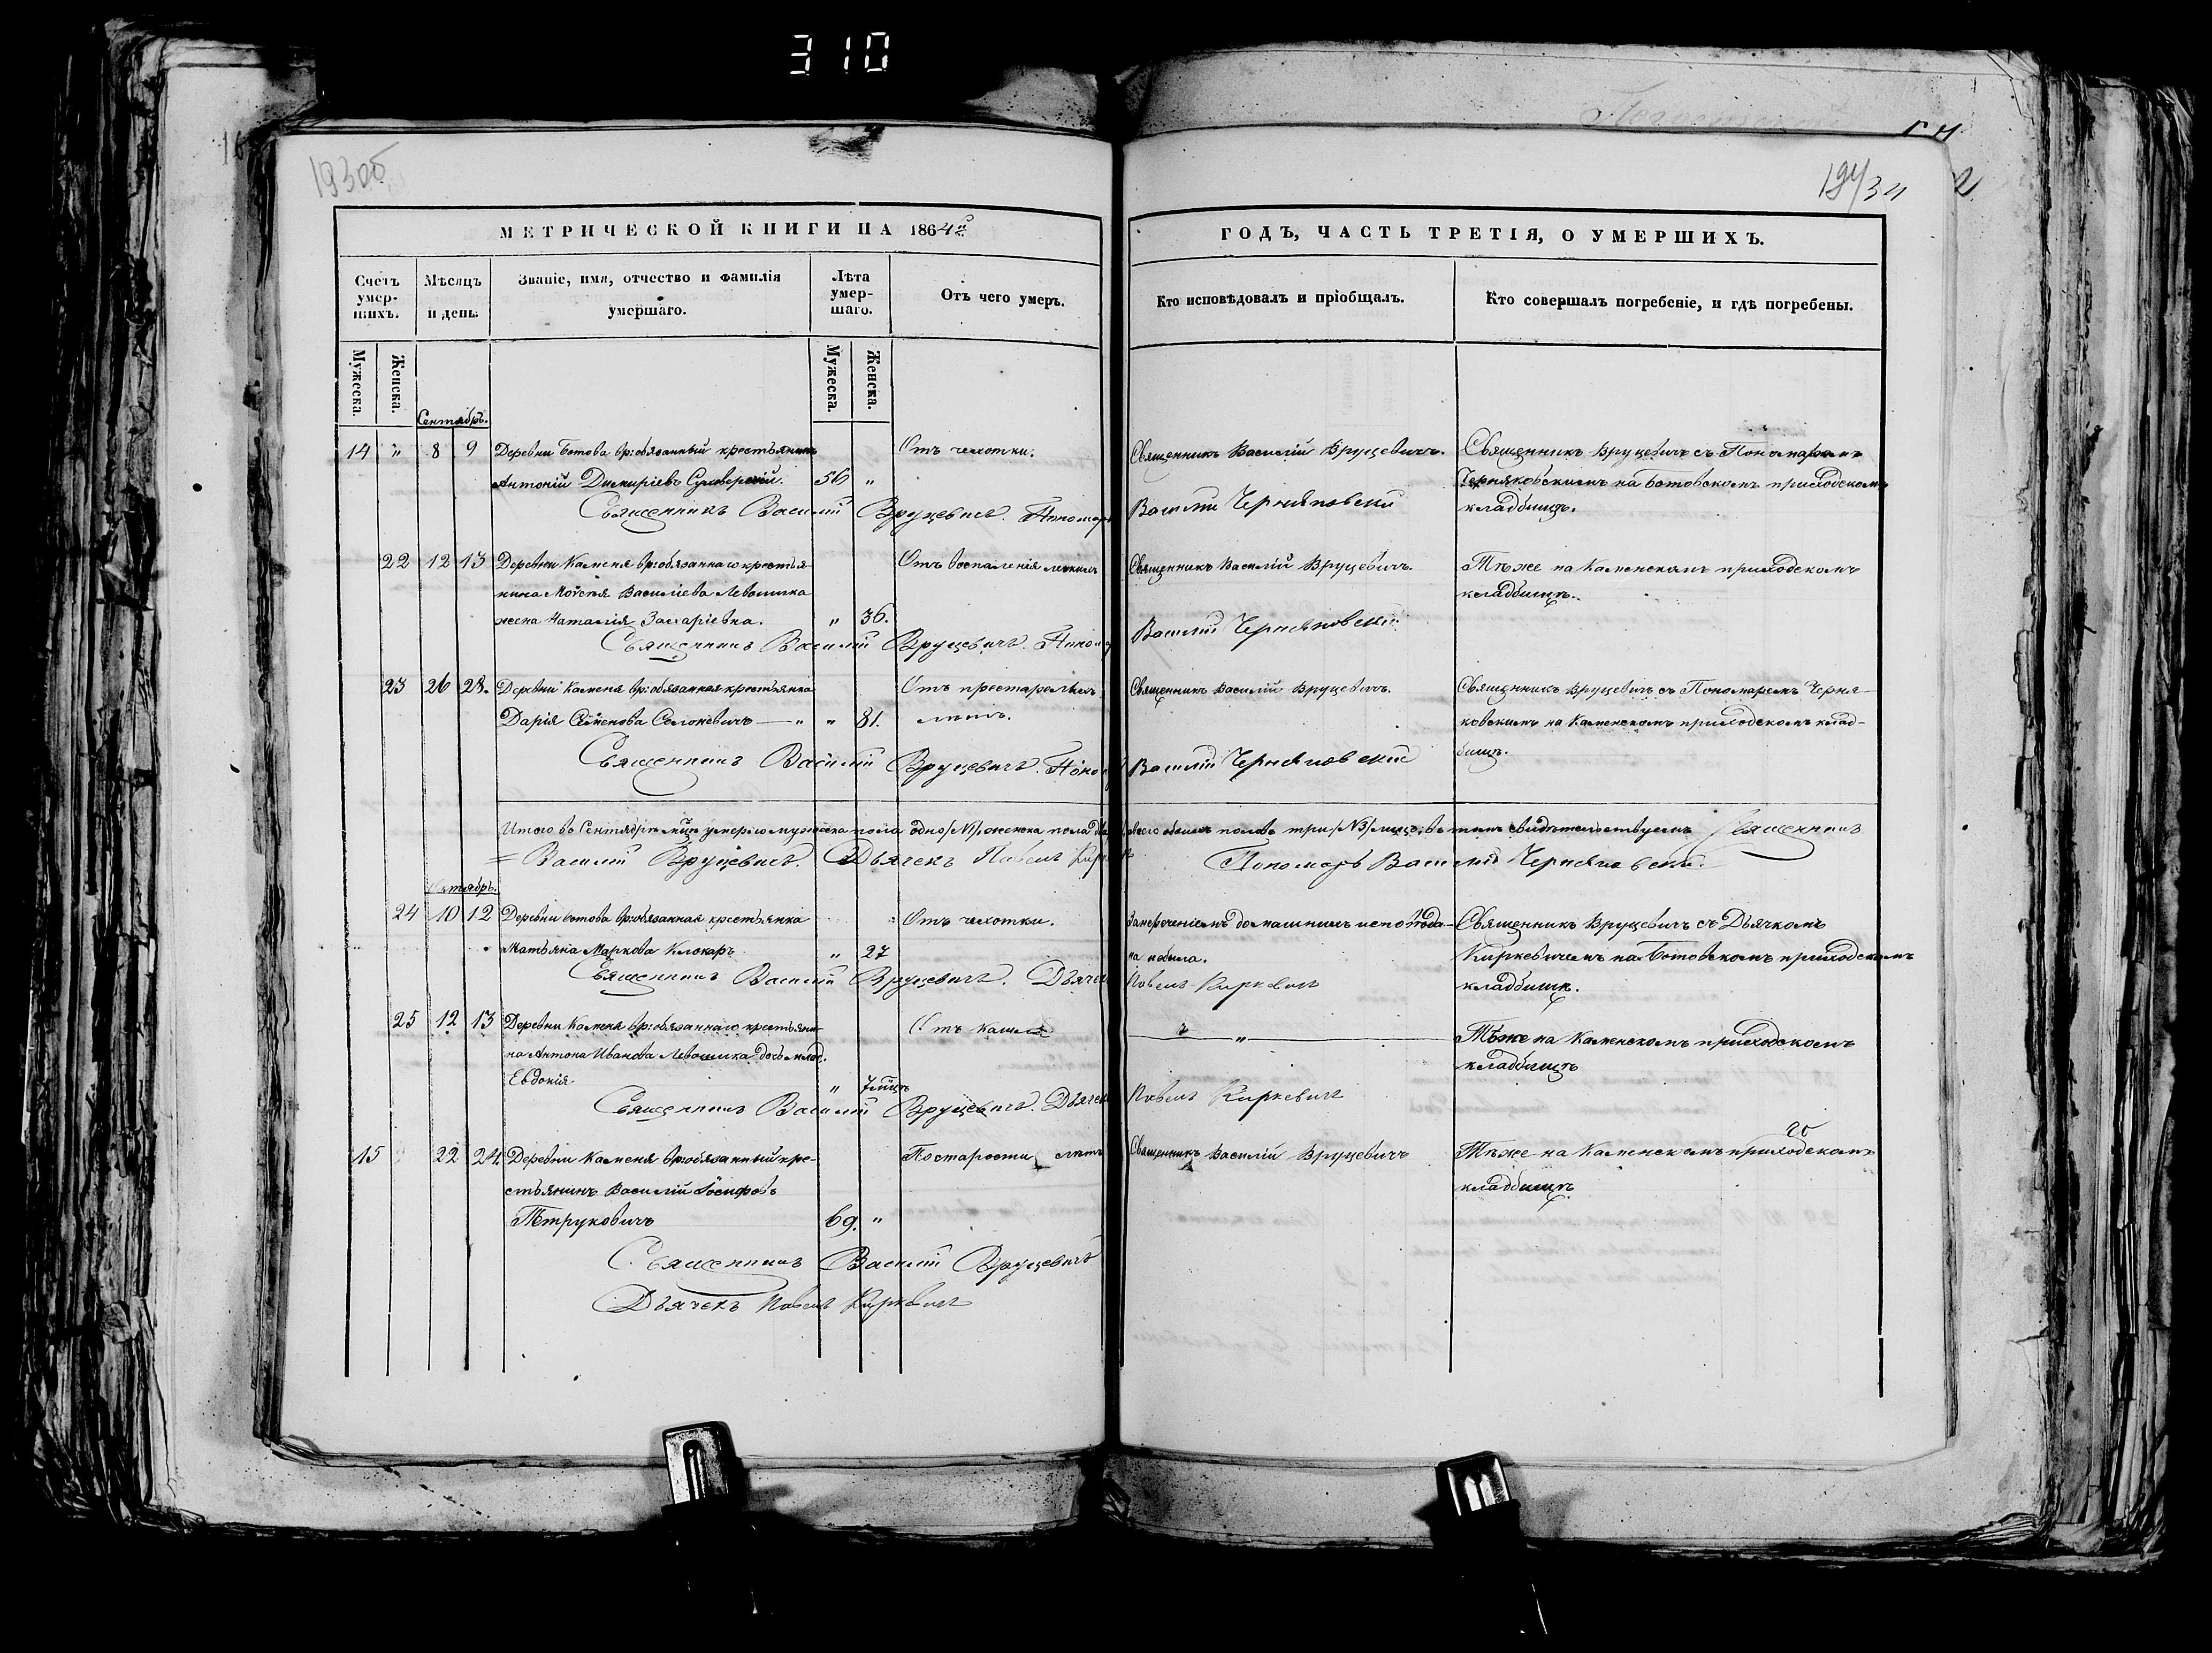 310
193об
194/34
МЕТРИЧЕСКОЙ КНИГИ НА 1864й
Счетъ умер-шихъ.
Мѣсяцъ и день.
Званіе, имя, отчество и фамилія умершаго.
Лѣта умер-шаго.
Отъ чего умеръ.
Мужеска.
Женска.
Мужеска.
Женска.
ГОДЪ, ЧАСТЬ ТРЕТІЯ, О УМЕРШИХЪ.
Кто исповѣдовалъ и пріобщалъ.
Кто совершалъ погребеніе, и гдѣ погребены.
Сентябрь.
14 " 8 9 Деревни Ботова вр:обязанный крестьянинъ Отъ чехотки. Священникъ Василій Вруцевичъ. Священникъ Вруцевичъ съ Пономаремъ
Антоній Димитріевъ 56 " Черняковскимъ на Ботовскомъ приходскомъ
кладбищѣ.
Священникъ Василій Вруцевичъ. Пономарь Василій Черняковскій
22 12 13 Деревни Каменя вр:обязаннаго крестья- Отъ воспаленія легкихъ Священникъ Василій Вруцевичъ. Тѣже на Каменскомъ приходскомъ
нина Моисея Василіева Левошика кладбищѣ.
жена Наталія Захаріевна. " 36.
Священникъ Василій Вруцевичъ. Поном Василій Черняковскій
23 26 28. Деревни Каменя вр:обязанная крестьянка Отъ престарелыхъ Священникъ Василій Вруцевичъ. Священникъ Вруцевичъ съ Пономаремъ Черня-
Дарія Семенова Солоневичъ — " " 81. лѣтъ. ковскимъ на Каменскомъ приходскомъ клад-
бищѣ.
Священникъ Василій Вруцевичъ. Поно Василій Черняковскій
Итого въ Сентябрѣ мцѣ умерло мужеска пола одно /№1/, женска пола два всего обоихъ половъ три /№3/ лицъ; въ томъ свидѣтельствуемъ Священникъ
= Василій Вруцевичъ. Дьячекъ Павелъ Кирк Пономарь Василій Черняковскій.
Октябрь.
24 10 12 Деревни Ботова вр:обязанная крестьянка Отъ чехотки. Священникъ Вруцевичъ съ Дьячкомъ
Матьяна Маркова Клокаръ " 27 на небыла. Киркевичемъ на Ботовскомъ приходскомъ
кладбищѣ.
Священникъ Василій Вруцевичъ. Дьячек Павелъ Киркевичъ
25 12 13 Деревни Каменя вр:обязаннаго крестьяни- Отъ кашля " Тѣже на Каменскомъ приходскомъ
на Антона Иванова Левошика дочь млад. кладбищѣ
Евдокія " 7 мцъ
Священникъ Василій Вруцевичъ. Дьячек Павелъ Киркевичъ
15 22 24. Деревни Каменя вр:обязанный кре- По старости лѣтъ Священникъ Василій Вруцевичъ Тѣже на Каменскомъ приходскомъ
стьянинъ Василій Іосифовъ кладбищѣ
Петруковичъ 69. "
Священникъ Василій Вруцевичъ
Дьячекъ Павелъ Киркевичъ